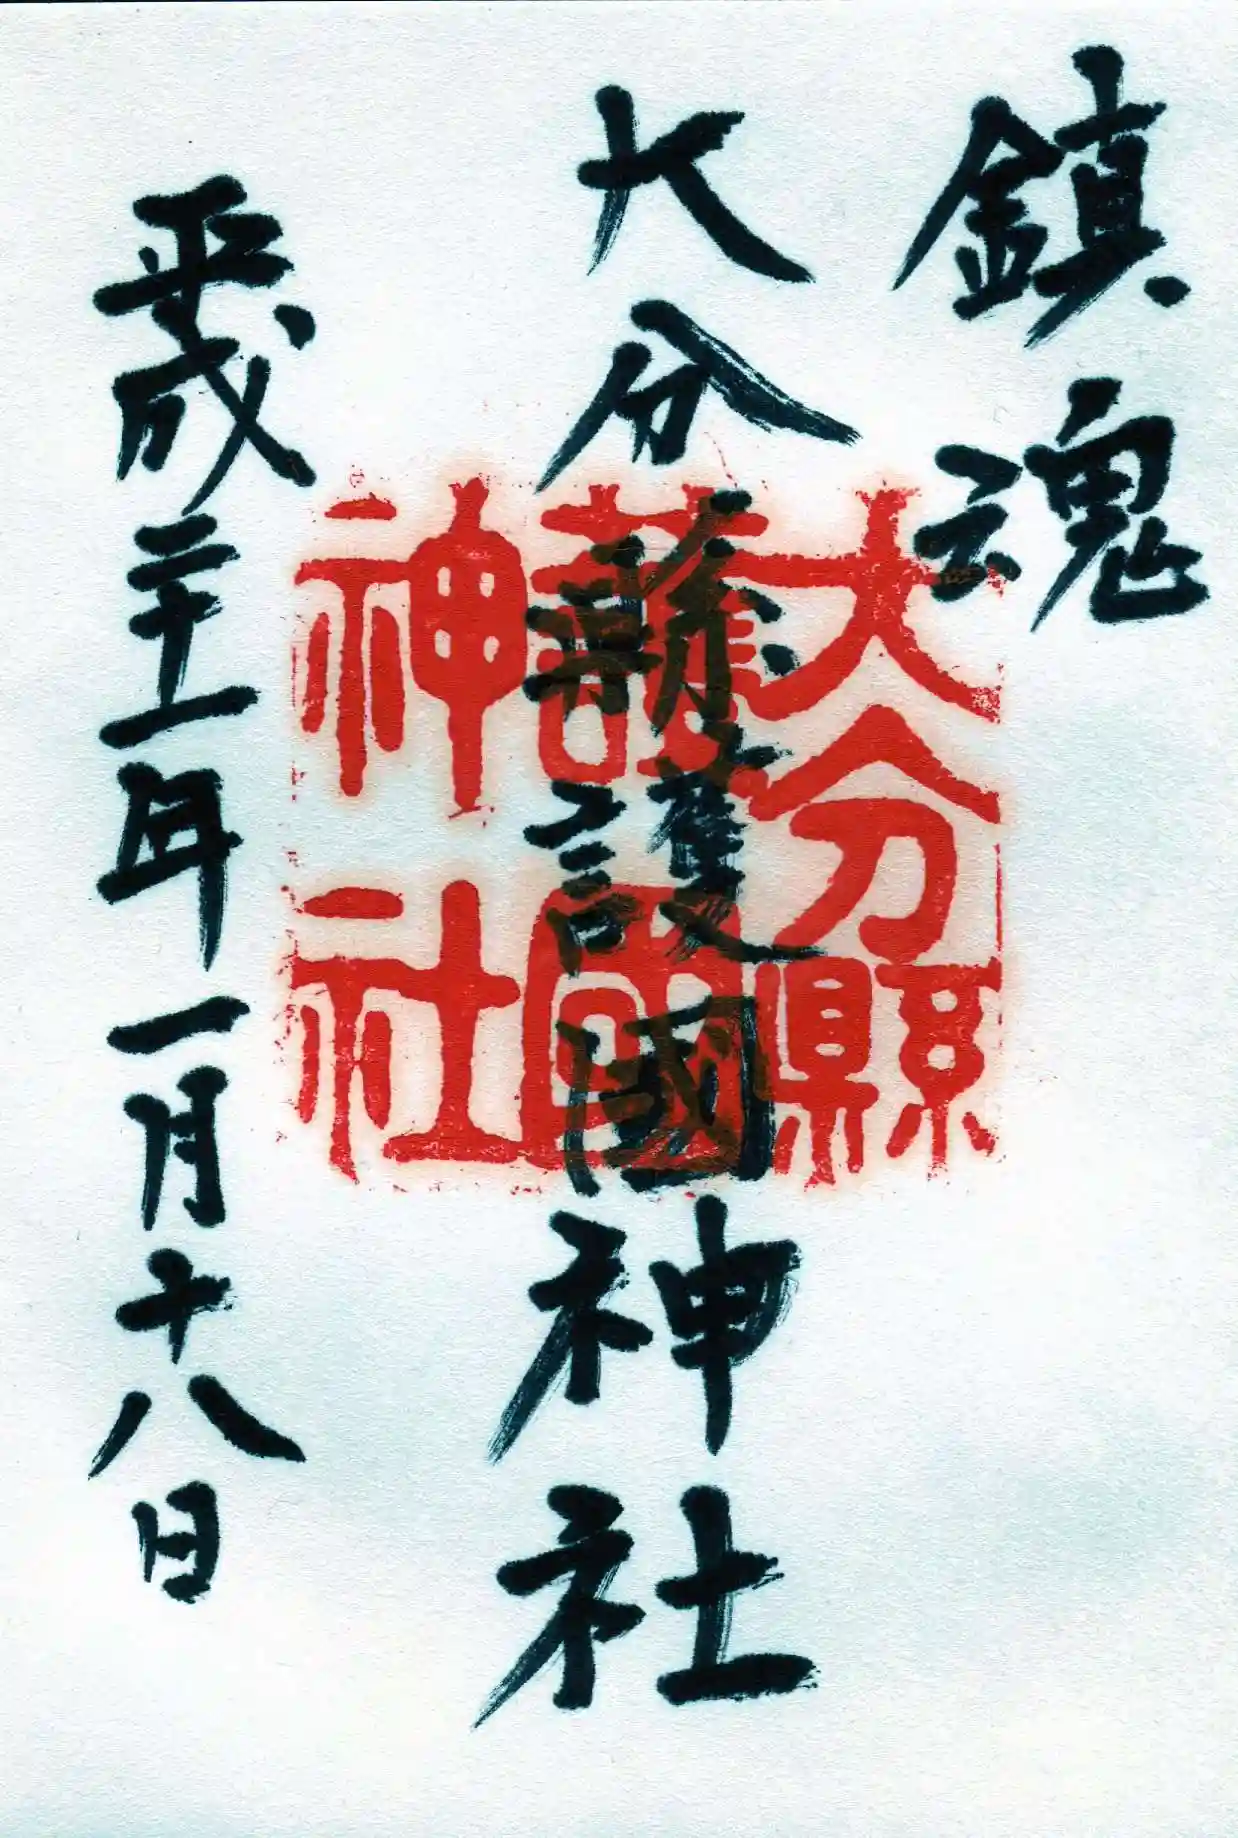 鎮魂
大分縣護國神社
平成二十一年一月十八日
大分縣
護國
神社